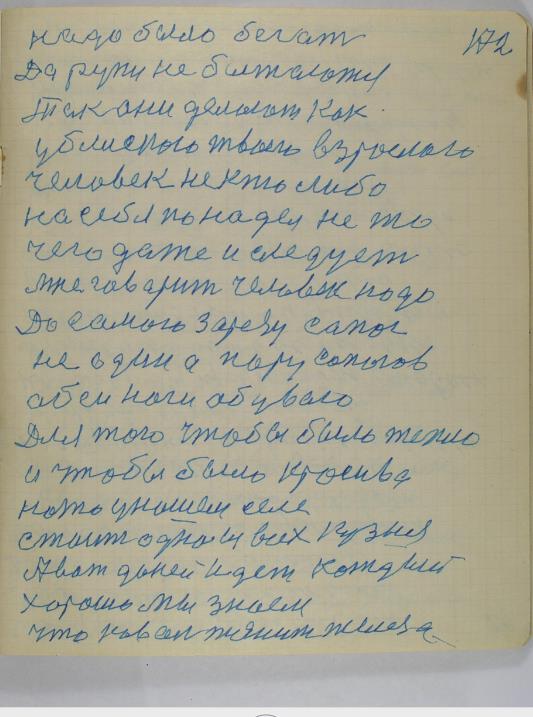 надо было бегат 172
Да руки не
Так они делают Как
взрослого
человек не кто либо
на себя по надел не то
чего даже и следует
мне говарит человек надо
До самого зарезу сапог
не один а пару сапогов
обеи ноги обувало
Для того чтобы было тепло
и чтобы было красива
селе
стоит одна и всех кузня
А вот до ней идет каждый
хорошо мы знаем
что железа